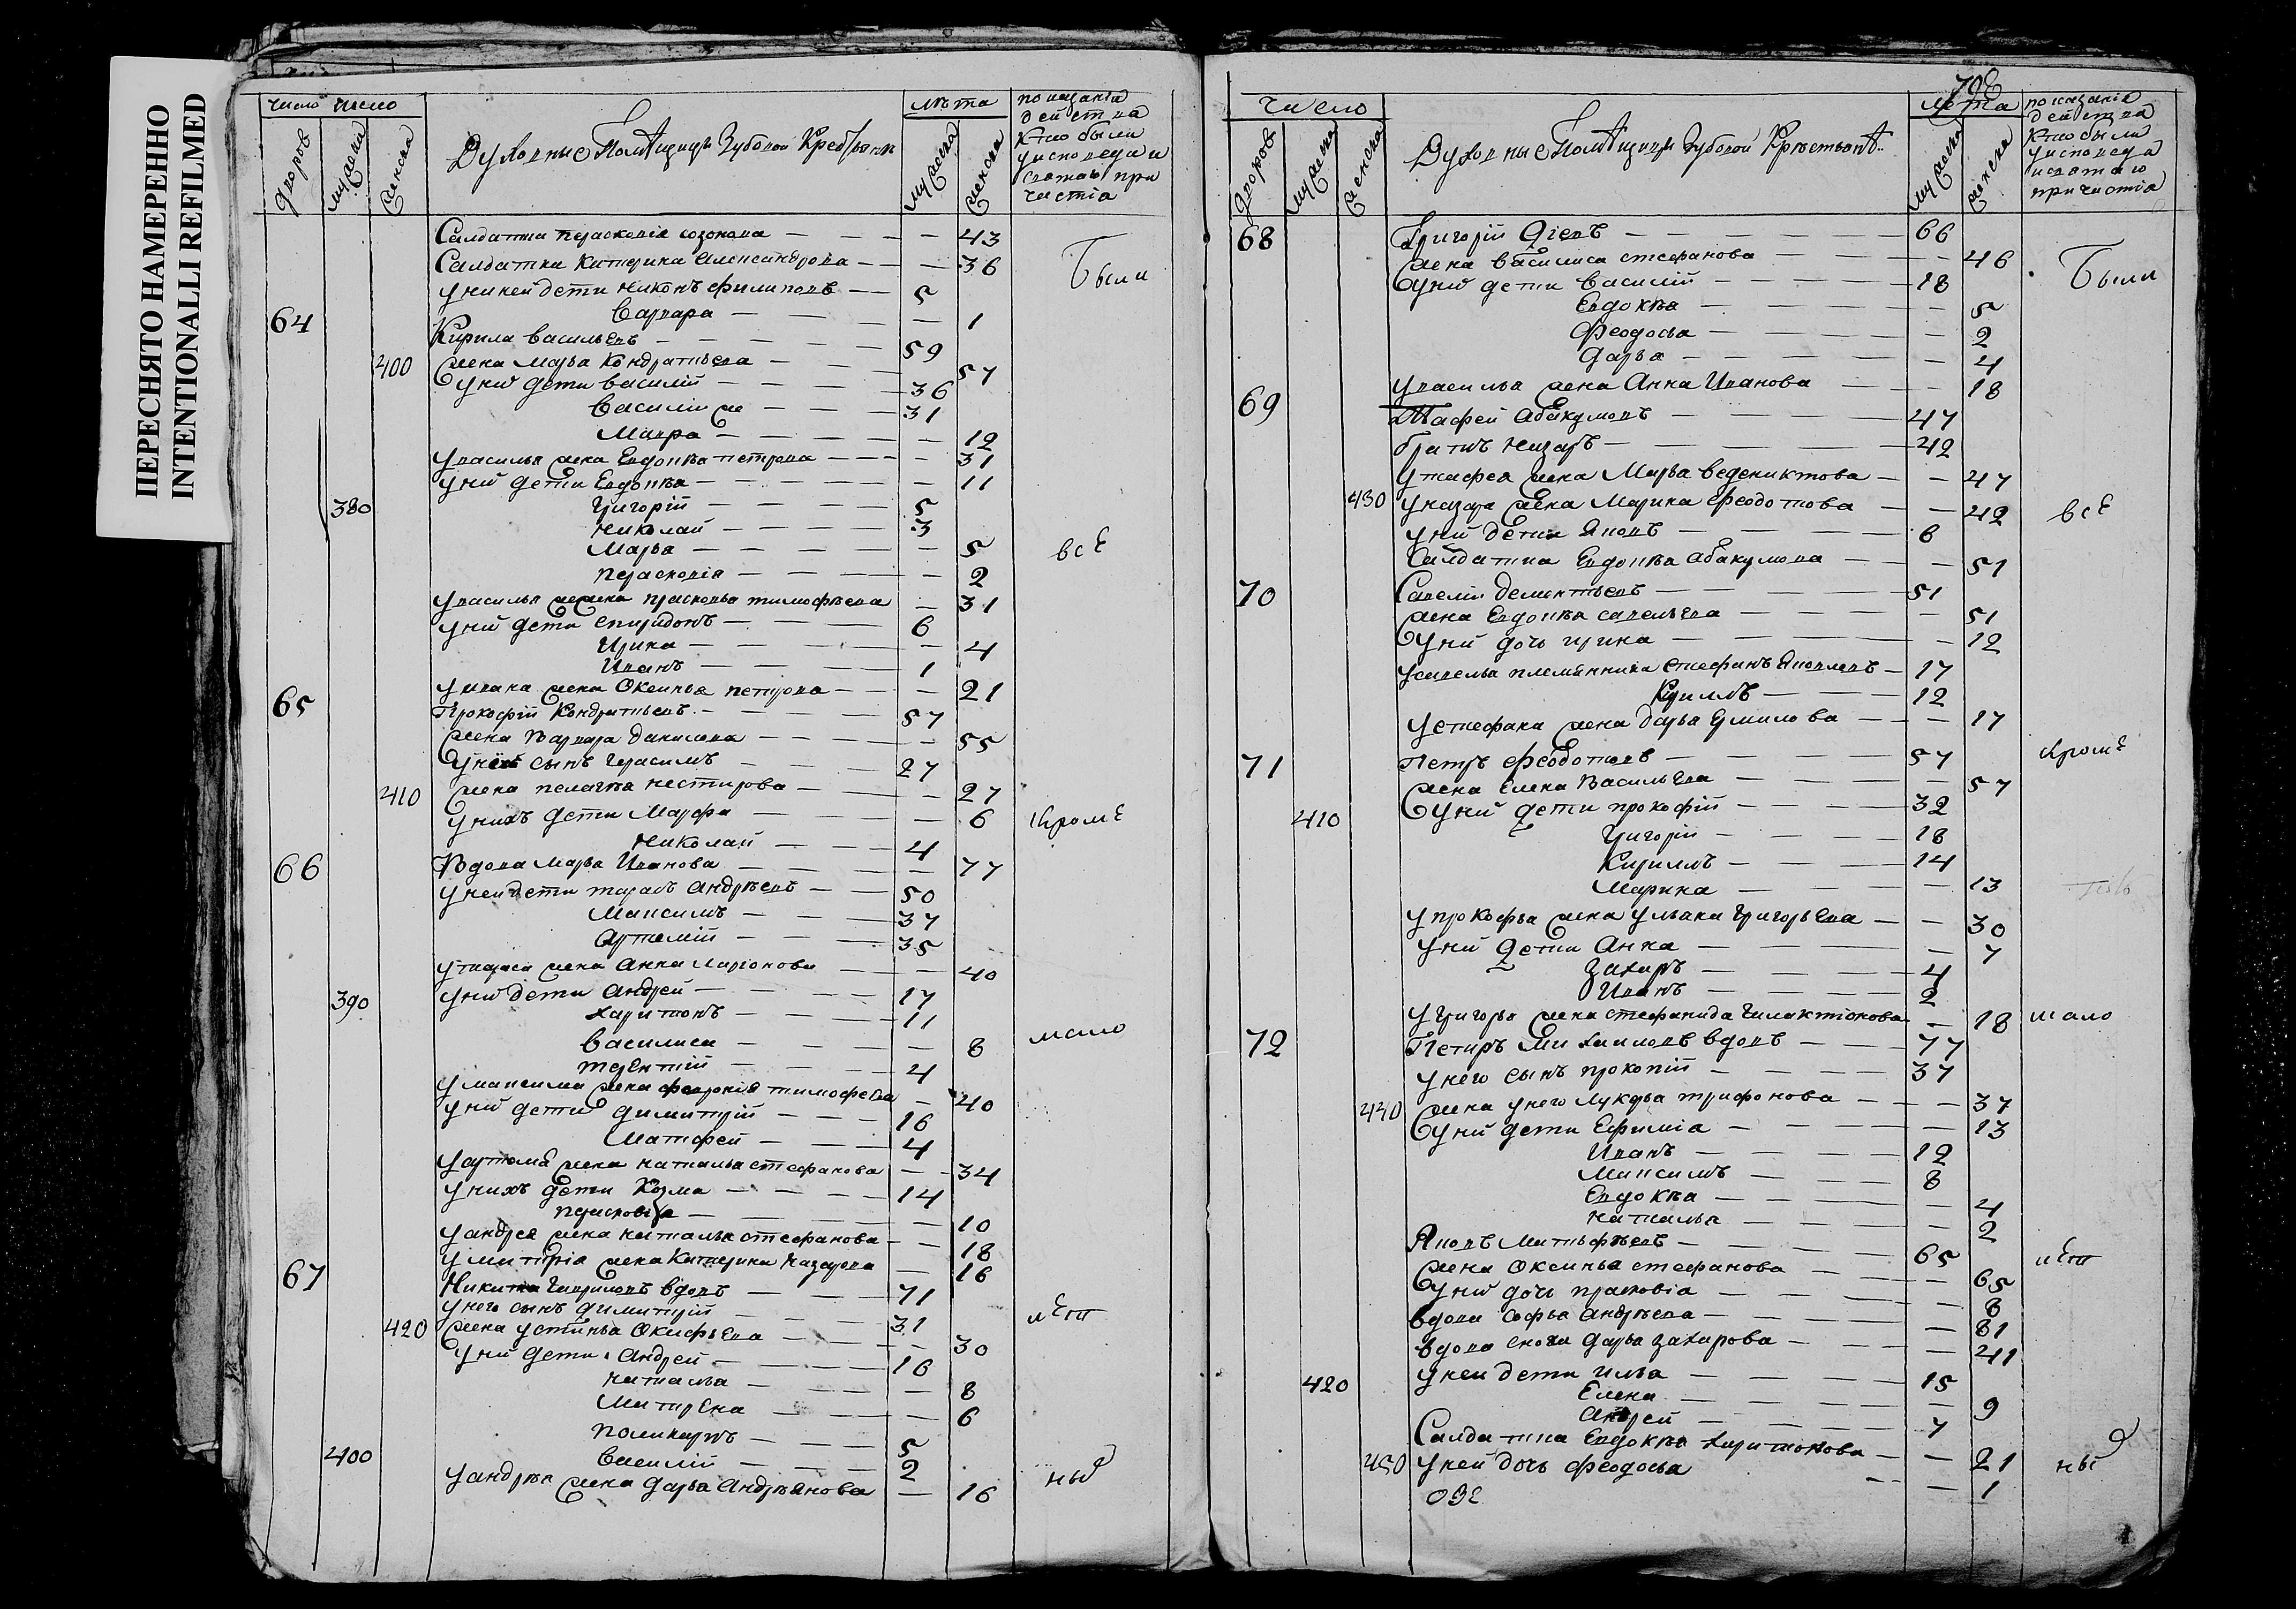 ПЕРЕСНЯТО НАМЕРЕННО
INTENTIONALLI REFILMED
число число
дворов мужеска женска
Духовные Помѣщицы Зубовой Крестьяне
лѣта
мужеска женска
показанія
действа
кто были
у исповеди и
святаго при
частія
Салдатка параскевія созонова — — 43
Салдатка Катерина Александрова — — 36
у ней дети Никонъ филиповъ — 5
Варвара — — 1
Были
64 Кирила васильевъ — 59
400 жена марья Кондратьева — 57
у них дети василій — 36
василій же — 31
Мавра — — 12
у василья жена Евдокѣа петрова — — 31
у них дети Евдокѣа — — 11
380 Григорій — 5
Николай — 3
Марья — — 5
все
параскевія — — 2
у василья жена прасковья тимофѣева — 31
у них дети спиридонъ — 6
Ирина — — 4
Иванъ — 1
у ивана жена Оксинья петрова — — 21
65 Прокофій Кондратьевъ — 57
жена Варвара Данилова — — 55
у них сынъ Герасимъ — 27
410 жена пелагѣа нестирова — — 27
у нихъ дети Марфа — — 6
кроме
Николай — 4
66 Вдова Марья Иванова — — 77
у ней дети тарасъ Андрѣевъ — 50
Максимъ — 37
Артемій — 35
у тараса жена Анна Ларіонова — — 40
390 у них дети Андрей — 17
харитонъ — 11
василиса — — 8
мало
терентій — 4
у максима жена февронія тимофеева — 40
у них дети димитрій — 16
Матфей — 4
у артема жена наталья стефанова — — 34
у нихъ дети Козма — 14
прасковья — — 10
у андрея жена наталья стефанова — — 18
у митрія жена Катерина Назарова — 16
67 Никита Гавриловъ вдовъ — 71
у него сынъ димитрій — 31
лет
420 жена устинья Окифьева — — 30
у них дети Андрей — 16
наталья — — 8
Матрена — — 6
поликарпъ — 5
400 василій — 2
у андрѣя жена дарья Андрѣянова — 16
ных
число
дворов мужеска женска
Духовные Помѣщицы Зубовой Крѣстьянѣ
лета
мужеска женска
показанія
действа
кто были
у исповеда
и святаго
причастія
68 Григорій — 66
жена василиса стефанова — — 46
у них дети василій — 18
Были
Евдокѣа — — 5
Феодосья — — 2
дарья — — 4
у василья жена Анна Иванова — — 18
69 Абакумовъ — 47
братъ назаръ — 42
жена Марья ведениктова — — 47
430 у назара жена Марина феодотова — — 42
все
у них дети Яковъ — 6
Салдатка Евдокѣа абакумова — — 51
70 Савелій дементьевъ — 51
жена Евдокѣа савельева — — 51
у них дочь ирина — — 12
у савелья племянники стефанъ Яковлевъ — 17
Кирилъ — 12
у стефана жена дарья Ермилова — — 17
71 Петръ феодотовъ — 57
кроме
жена Елена Васильева — — 57
410 у них дети прокофій — 32
Григорій — 18
Кирилъ — 14
Марина — — 13
у прокофья жена ульана Григорьева — — 30
у них дети Анна — — 7
Захаръ — 4
Иванъ — 2
у Григорья жена стефанида Галактіонова — 18
мало
72 Петръ Михаиловъ вдовъ — 77
у него сынъ прокопій — 37
440 жена у него Лукерья трифонова — — 37
у них дети Ефимія — — 13
Иванъ — 12
Максимъ — 8
Евдокѣа — — 4
наталья — — 2
Яковъ Матвѣевъ — 65
лет
жена Оксинья стефанова — — 65
у них дочь прасковія — — 8
вдова софья Андрѣева — — 81
вдова сноха дарья захарова — — 41
420 у ней дети илья — 15
Елена — — 9
Андрей — 7
Салдатка Евдокѣа харитонова — — 21
450 у ней дочь феодосья — — 1
ных